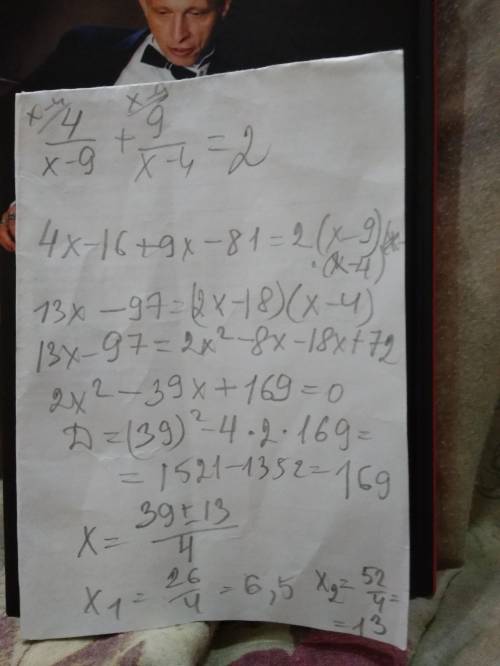 x-4/ 4/(x-9) + x-9/ 9/(x-4) = 2
4x-16+9x-81=2(x-9)
·(x-4)
13x-97=(2x-18)(x-4)
13x-97=2x²-8x-18x+72
2x²-39x+169=0
Д=(39)²-4·2·169=
=1521-1352=169
x=(39±13)/4
x₁=26/4=6,5 x₂=52/4=
=13